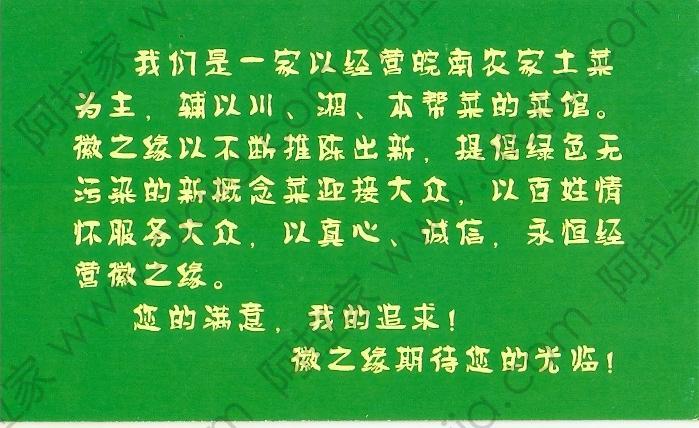 我们是一家以经营皖南农家土菜
为主，辅以川、湘、本帮菜的菜馆。
徽之缘以不断推陈出新，提倡绿色无
污染的新概念菜迎接大众，以百姓情
怀服务大众，以真心、诚信，永恒经
营徽之缘。
您的满意，我的追求！
徽之缘期待您的光临！
阿拉家 www.alajia.com 阿拉家